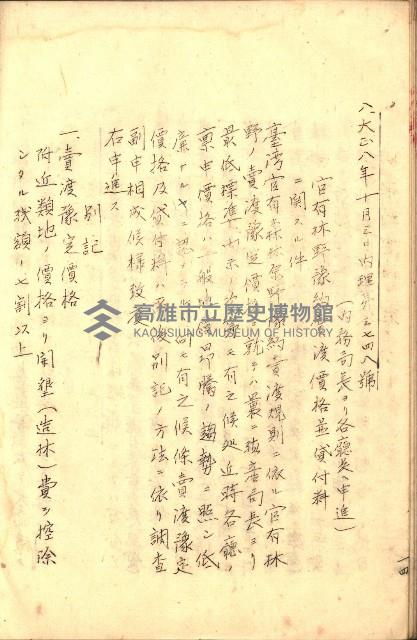 八、大正八年十月三日内理第三七四八號
(内務局長ヨリ各廳長ヘ申進)
官有林野豫約賣渡價格並貸付料
ニ關スル件
臺灣官有森林原野豫約賣渡規則ニ依ル官有林
野ノ賣渡豫定價格ニ就テハ曩ニ殖産局長ヨリ
最低標準 有之候処近時各廳ノ
稟申價格ハ一般 昂騰ノ趨勢ニ照シ低
廉ナル 有之候條賣渡豫定
價格及貸付料ハ 別記ノ方法ニ依リ調査
副申相成候様致
右申進ス
別記
一、賣渡豫定價格
附近類地ノ價格ヨリ開墾(造林)費ヲ控除
シタル殘額ノ七割以上
一四
高雄市立歷史博物館
KAOHSIUNG MUSEUM OF HISTORY